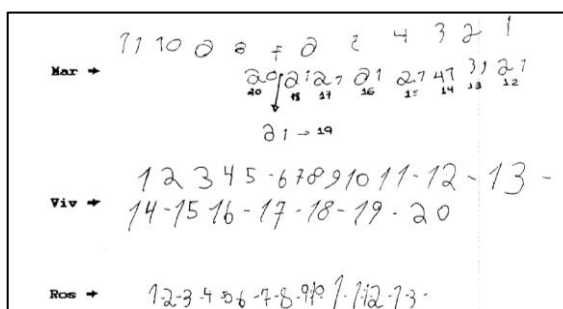 11 10 6 8 7 6 5 4 3 2 1
Mar →
20 21 21 21 21 47 31 21
20 18 17 16 15 14 13 12
21 → 19
1 2 3 4 5 - 6 7 8 9 10 11 - 12 - 13 -
Viv →
14 - 15 16 - 17 - 18 - 19 - 20
Ros → 1-2-3-4 5 6-7-8-9 10 1-1-12-13-